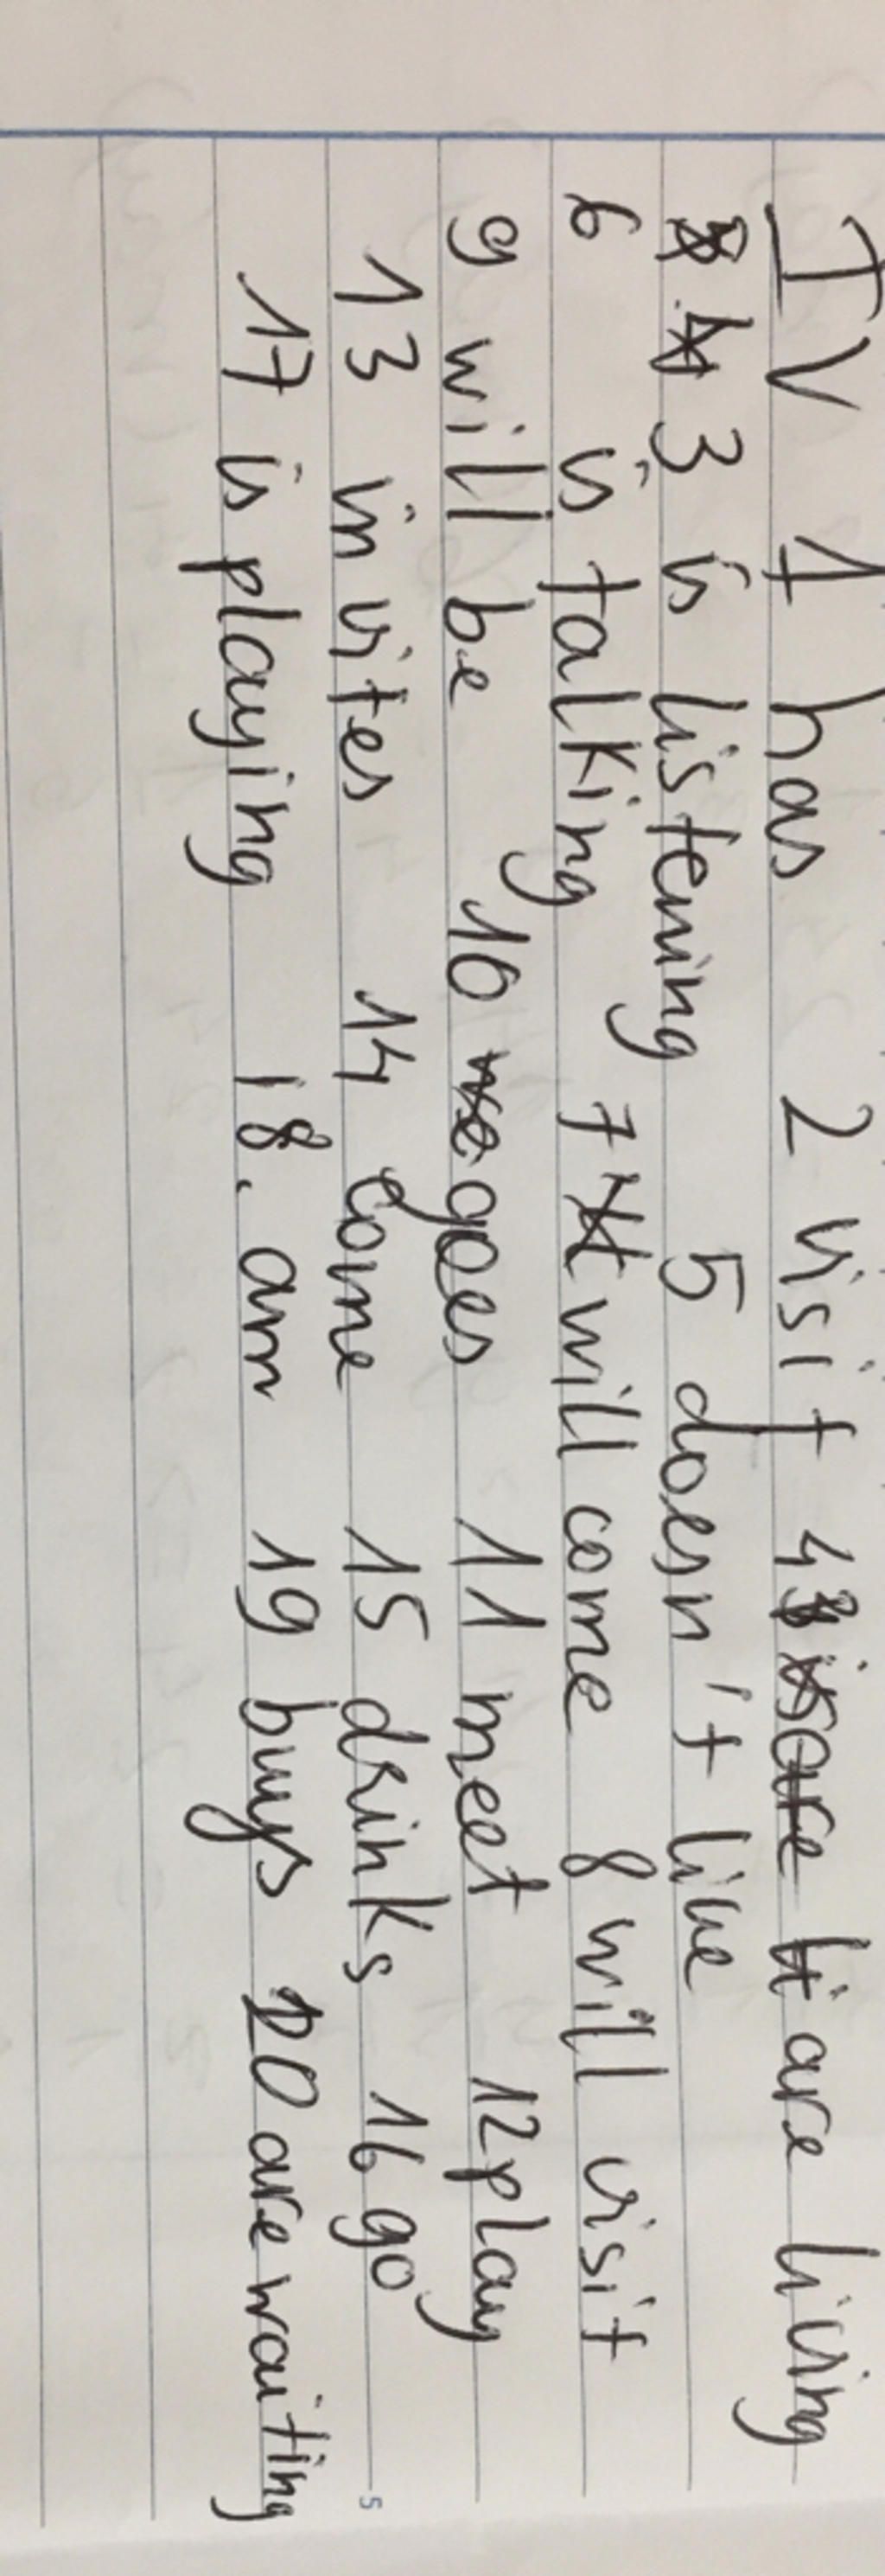 IV 1 has 2 visit 4 are living
3 is listening 5 doesn't live
6 is talking 7 will come 8 will visit
9 will be 10 goes 11 meet 12 play
13 invites 14 come 15 drinks 16 go
17 is playing 18. am 19 buys 20 are waiting
5